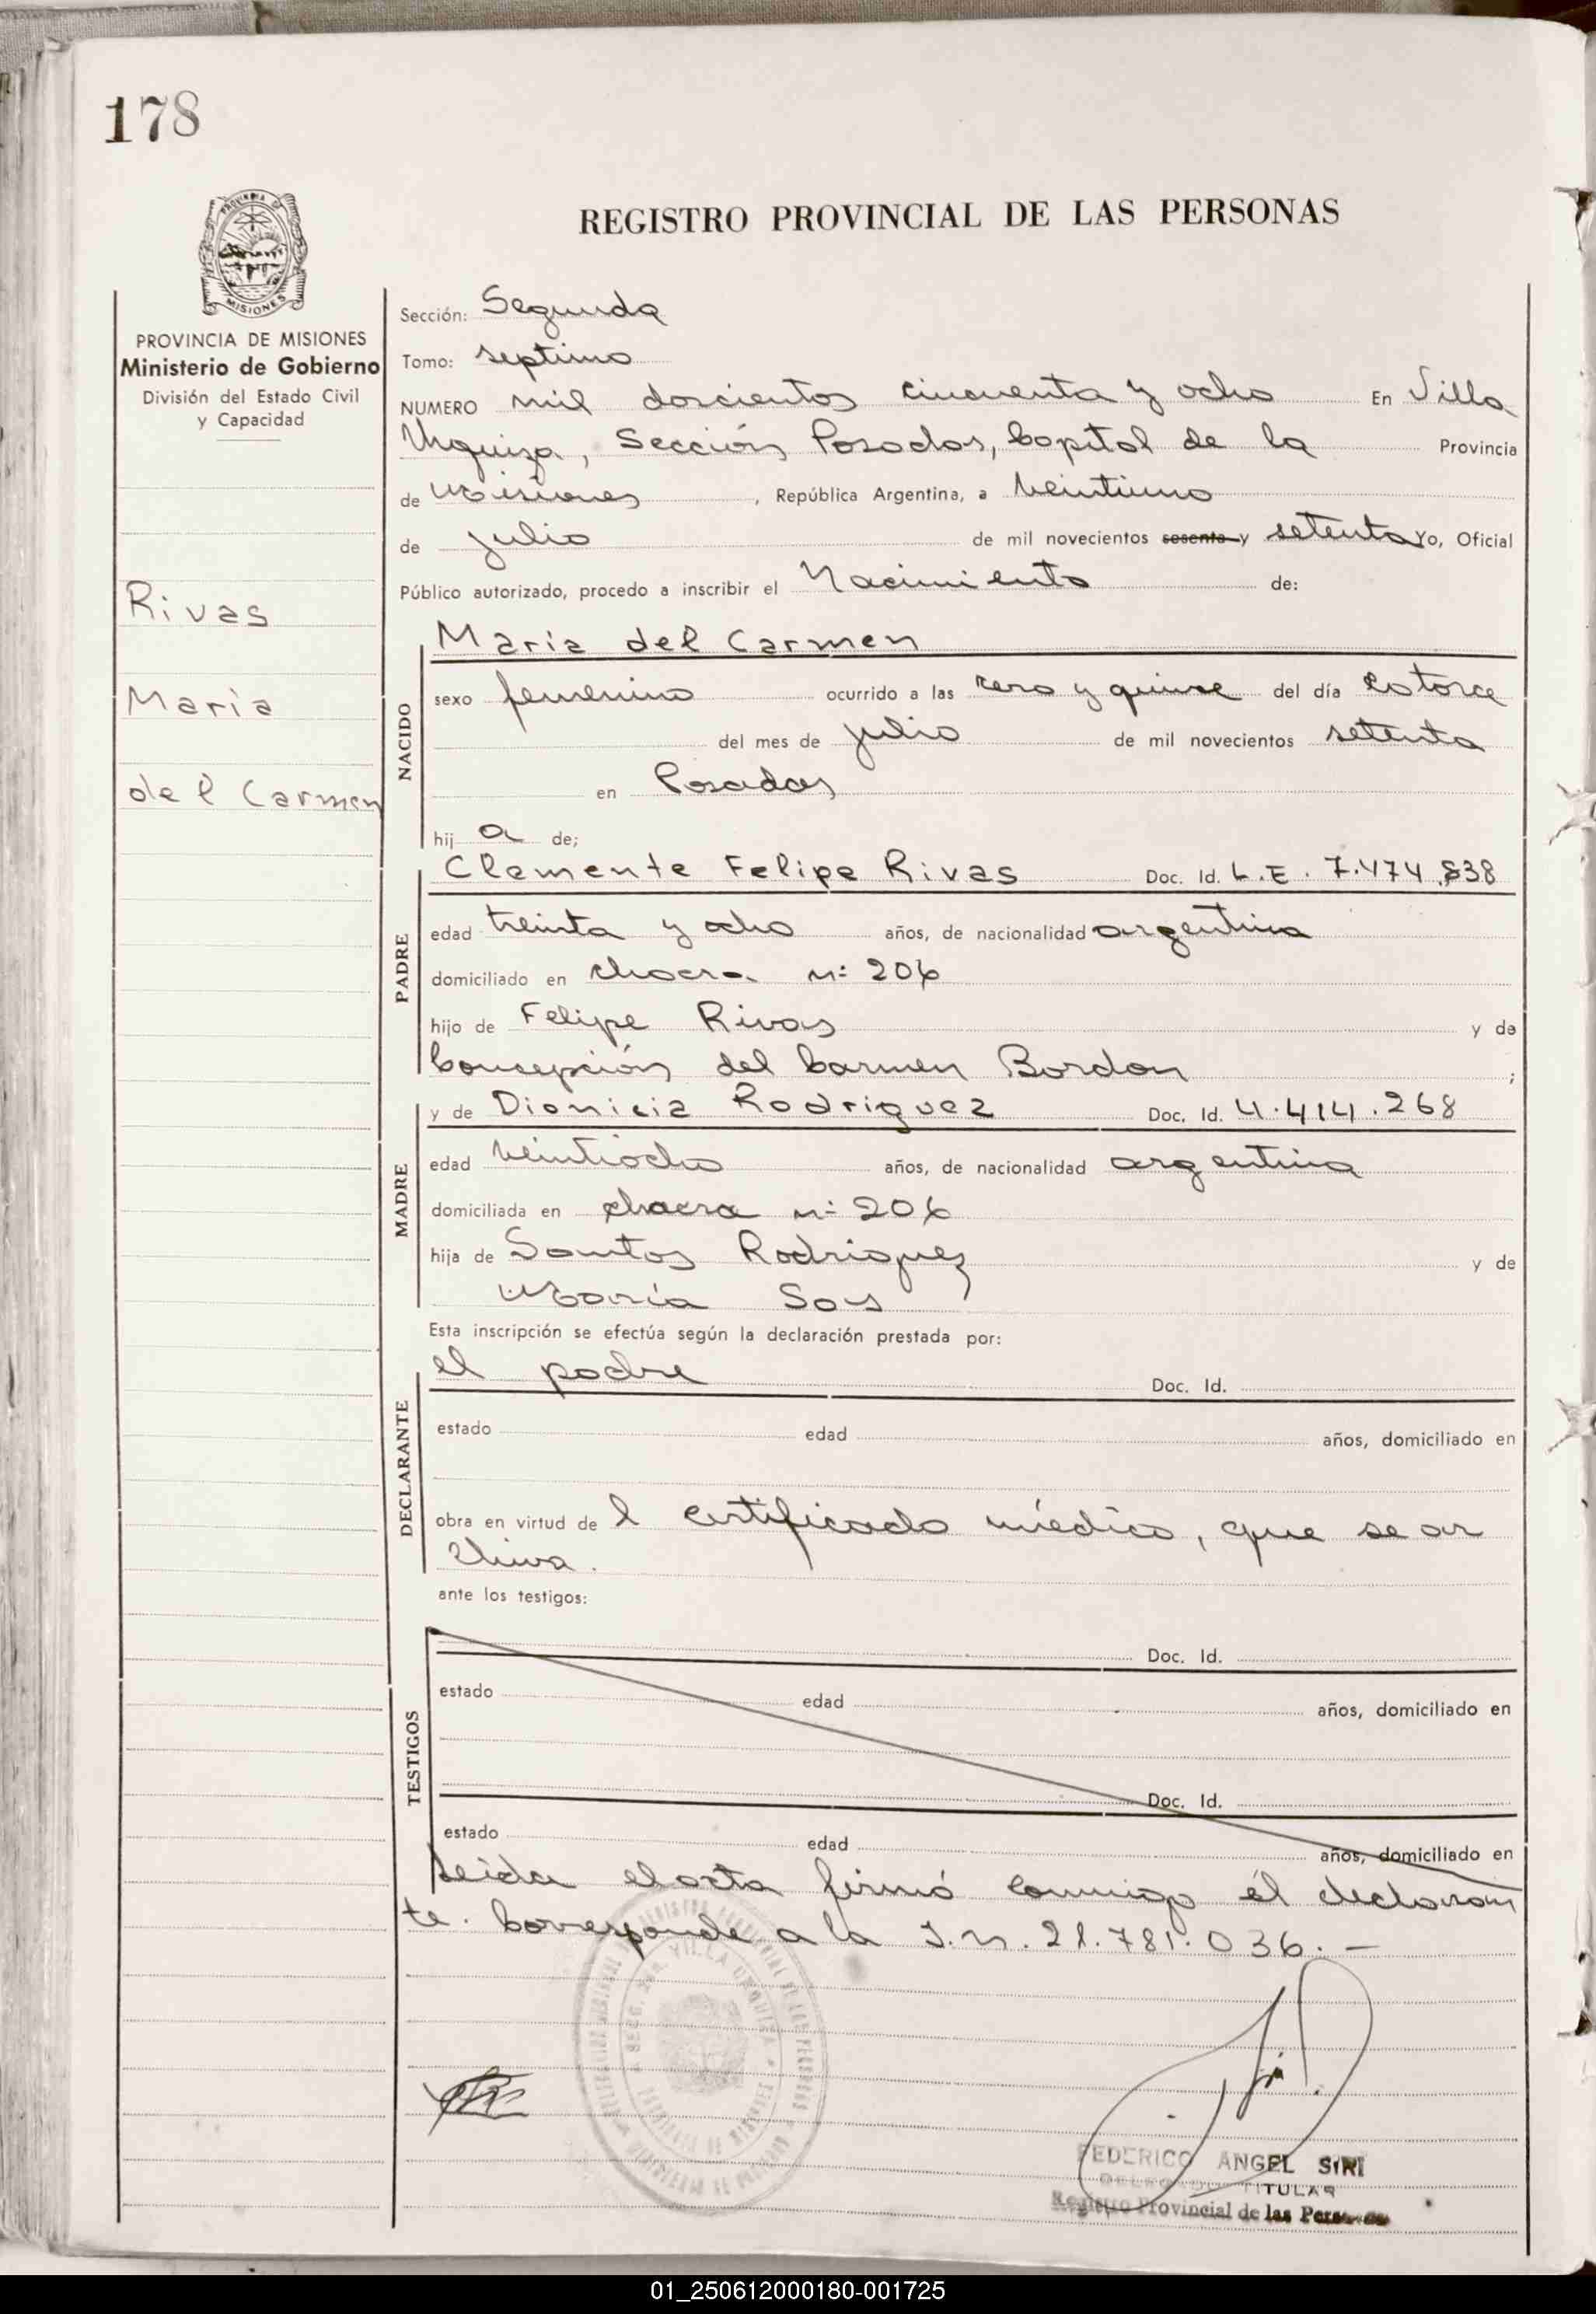 178
REGISTRO PROVINCIAL DE LAS PERSONAS
MISIONES
PROVINCIA DE MISIONES
Ministerio de Gobierno
División del Estado Civil
y Capacidad
Rivas
María
del Carmen
Sección: Segunda
Tomo: septimo
NUMERO mil doscientos cincuenta y ocho En Villa
Urquiza, Sección Posadas, Capital de la Provincia
de Misiones, República Argentina, a veintiuno
de julio de mil novecientos sesenta y setenta Yo, Oficial
Público autorizado, procedo a inscribir el Nacimiento de:
NACIDO
María del Carmen
sexo femenino ocurrido a las cero y quince del día catorce
del mes de julio de mil novecientos setenta
en Posadas
hij a de;
PADRE
Clemente Felipe Rivas Doc. Id. L.E. 7.474.838
edad treinta y ocho años, de nacionalidad argentina
domiciliado en chacra n: 206
hijo de Felipe Rivas y de
Concepción del Carmen Bordon ;
MADRE
y de Dionicia Rodriguez Doc. Id. 4.414.268
edad veintiocho años, de nacionalidad argentina
domiciliada en chacra n: 206
hija de Santos Rodriguez y de
María Sas
Esta inscripción se efectúa según la declaración prestada por:
DECLARANTE
el padre Doc. Id.
estado edad años, domiciliado en
obra en virtud de l certificado médico, que se ar
chiva.
ante los testigos:
TESTIGOS
Doc. Id.
estado edad años, domiciliado en
Doc. Id.
estado edad años, domiciliado en
Leida el acta firmó conmigo él declaran
te. Corresponde a la I.n. 21.781.036.—
VILLA URQUIZA
FEDERICO ANGEL SIRI
DELEGADO TITULAR
Registro Provincial de las Personas
01_250612000180-001725